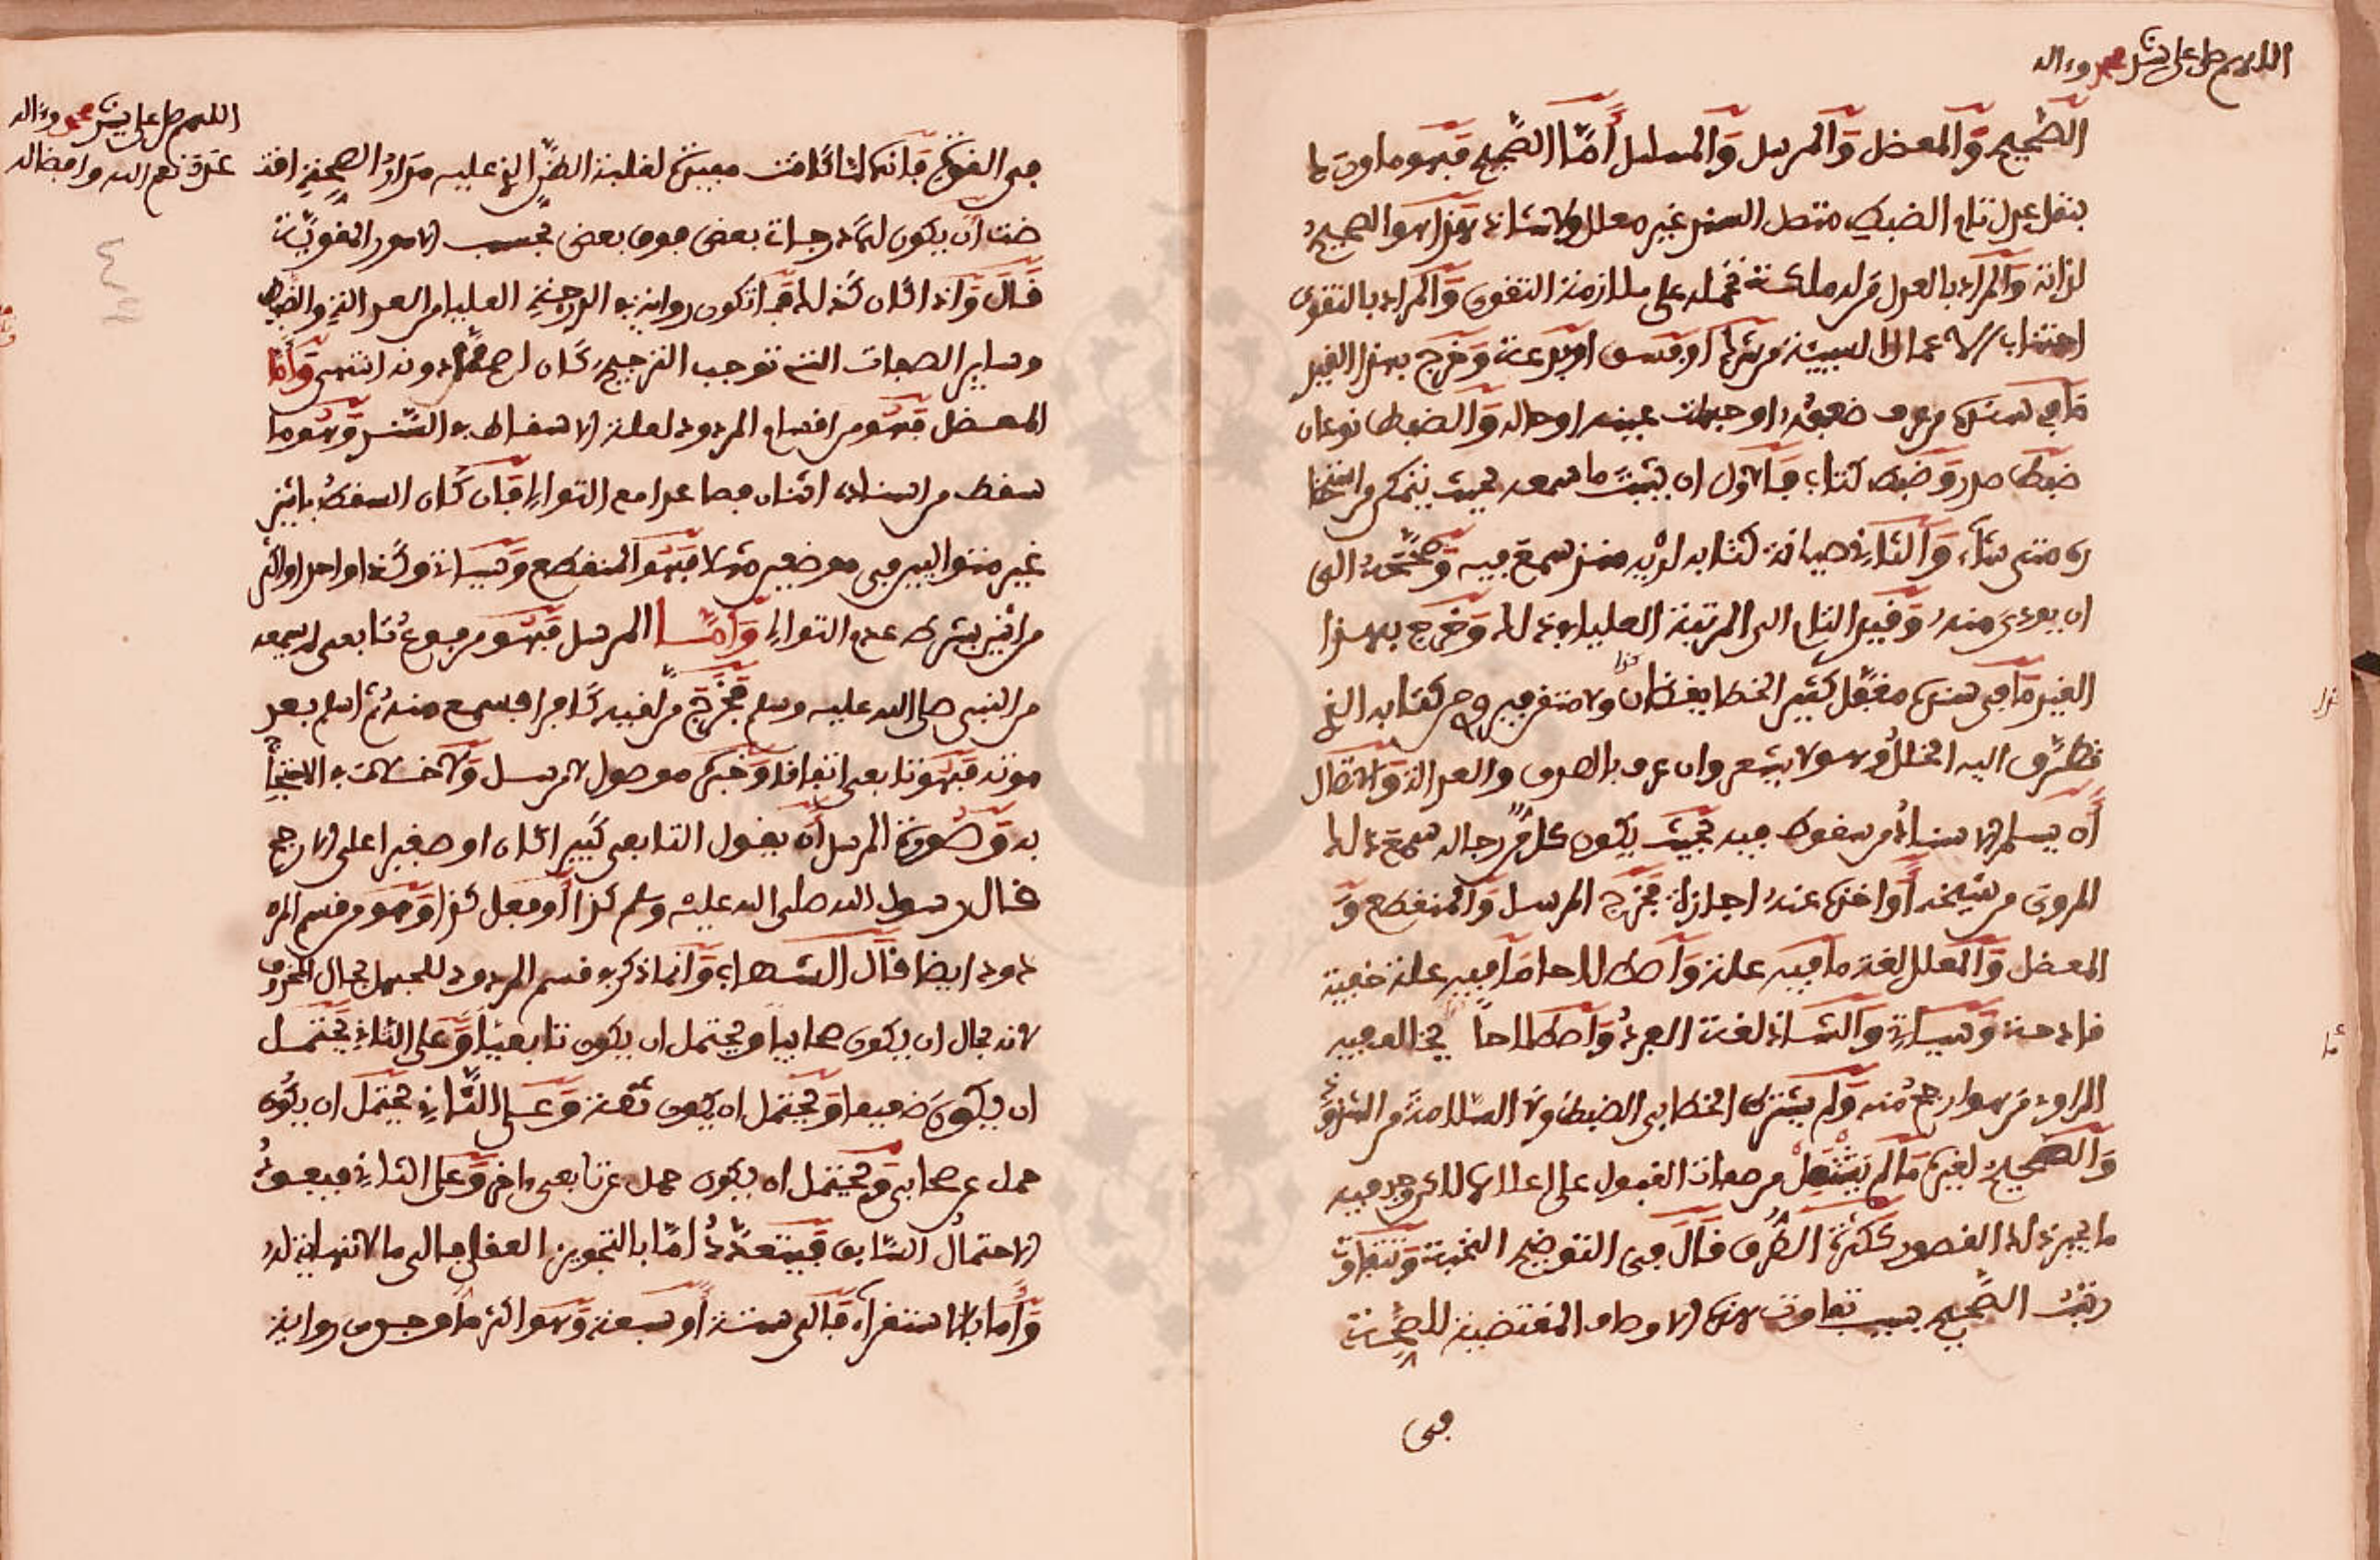 اللهم صل على سيدنا محمد وءاله
الصحيح والمعضل والمرسل والمسلسل أما الصحيح فهو ما اوتى لنا
بنقل عدل تام الضبط متصل السند غير معلل ولا شاذ هذا هو الصحيح
لذاته والمراد بالعدل من له ملكة تحمله على ملازمة التقوى والمراد بالتقوى
اجتناب الاعمال السيئة من شرك او فسق او بدعة وخرج بهذا القيد
ما في سنده من عرف ضعفه او جهلت عينه او حاله والضبط نوعان
ضبط صدر وضبط كتاب فالاول ان يثبت ما سمعه بحيث يتمكن من استحضا
ره متى شاء والثاني صيانة كتابه لديه منذ سمع فيه وصححه الى
ان يودي منه وقيد التام الى المرتبة العليا في ذلك وخرج بهذا
القيد ما في سنده مغفل كثير الخطا يقظان كذا ولا متقن خرج كتابه الذي
تطرق اليه الخلل وهو لا يشعر وان عرف بالصدق والعدالة والاتصال
أن يسلم الاسناد من سقوط فيه بحيث يكون كل من رجاله سمع ذلك
المروي من شيخه أو اخذه عنه اجازة فخرج المرسل والمنقطع و
المعضل والمعلل لغة ما فيه علة واصطلاحا ما فيه علة خفية
قادحة وسياتي والشاذ لغة الفرد واصطلاحا يخالف فيه
الراوي من هو ارجح منه ولم يشترك الخطا في الضبط ولا السلامة من الشذوذ
والصحيح لغيره ما لم يشتمل من صفات القبول على اعلاها لكن وجد فيه
ما يجبر ذلك القصور ككثرة الطرق قال في التوضيح النخبة وتتفاوت
رتب الصحيح بسبب تفاوت هذه الاوصاف المقتضية للصحة
في
اللهم صل على سيدنا محمد وءاله
عدة نعم الله وافضاله
في القوة فانها لما كانت مفيدة لغلبة الظن الذي عليه مدار الصحة اقتـ
ضت أن يكون لها درجات بعض فوق بعض بحسب الامور المقوية
قال واذا كان كذلك فما تكون رواته في الدرجة العليا من العدالة والضبط
وساير الصفات التي توجب الترجيح كان اصح مما دونه انتهى وأما
المعضل فهو من اقسام المردود لعلة الاسقاط في السند وهو ما
سقط من اسناده اثنان فصاعدا مع التوالي فان كان السقط باثنين
غير متواليين في موضعين مثلا فهو المنقطع وسياتي وكذا واحد او اكثر
من اثنين بشرط عدم التوالي وأما المرسل فهو مرفوع تابعي لم يسمعه
من النبي صلى الله عليه وسلم فخرج من لقيه كافرا فسمع منه ثم اسلم بعد
موته فهو تابعي اتفاقا وخبره موصول لا مرسل ولا خلاف في الاحتجاج
به وصورة المرسل أن يقول التابعي كبيرا كان او صغيرا على الارجح
قال رسول الله صلى الله عليه وسلم كذا أو فعل كذا وهو من قسم المر
دود ايضا قال الشهاب وانما ذكر في قسم المردود للجهل بحال المحذوف
لانه بحال ان يكون صحابيا ويحتمل ان يكون تابعيا وعلى الثاني يحتمل
ان يكون ضعيفا ويحتمل ان يكون ثقة وعلى الثاني يحتمل ان يكون
حمل عن صحابي ويحتمل ان يكون حمل عن تابعي ءاخر وعلى الثاني فيعود
الاحتمال السابق فيتعدد أما بالتجويز العقلي فالى ما لا نهاية له
وأما بالاستقراء فالى ستة أو سبعة وهو اكثر ما وجد من رواية